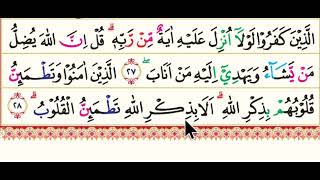 الَّذِيْنَ كَفَرُوْا لَوْلَاۤ اُنْزِلَ عَلَيْهِ اٰيَةٌ مِّنْ رَّبِّهٖ ؕ قُلْ اِنَّ اللّٰهَ يُضِلُّ
مَنْ يَّشَآءُ وَيَهْدِيْۤ اِلَيْهِ مَنْ اَنَابَ ۖ ۚ ﴿۲۷﴾ اَلَّذِيْنَ اٰمَنُوْا وَتَطْمَىِٕنُّ
قُلُوْبُهُمْ بِذِكْرِ اللّٰهِ ؕ اَلَا بِذِكْرِ اللّٰهِ تَطْمَىِٕنُّ الْقُلُوْبُ ؕ ﴿۲۸﴾